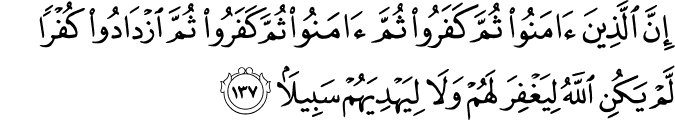 إِنَّ ٱلَّذِينَ ءَامَنُوا۟ ثُمَّ كَفَرُوا۟ ثُمَّ ءَامَنُوا۟ ثُمَّ كَفَرُوا۟ ثُمَّ ٱزْدَادُوا۟ كُفْرًا
لَّمْ يَكُنِ ٱللَّهُ لِيَغْفِرَ لَهُمْ وَلَا لِيَهْدِيَهُمْ سَبِيلًۢا ١٣٧